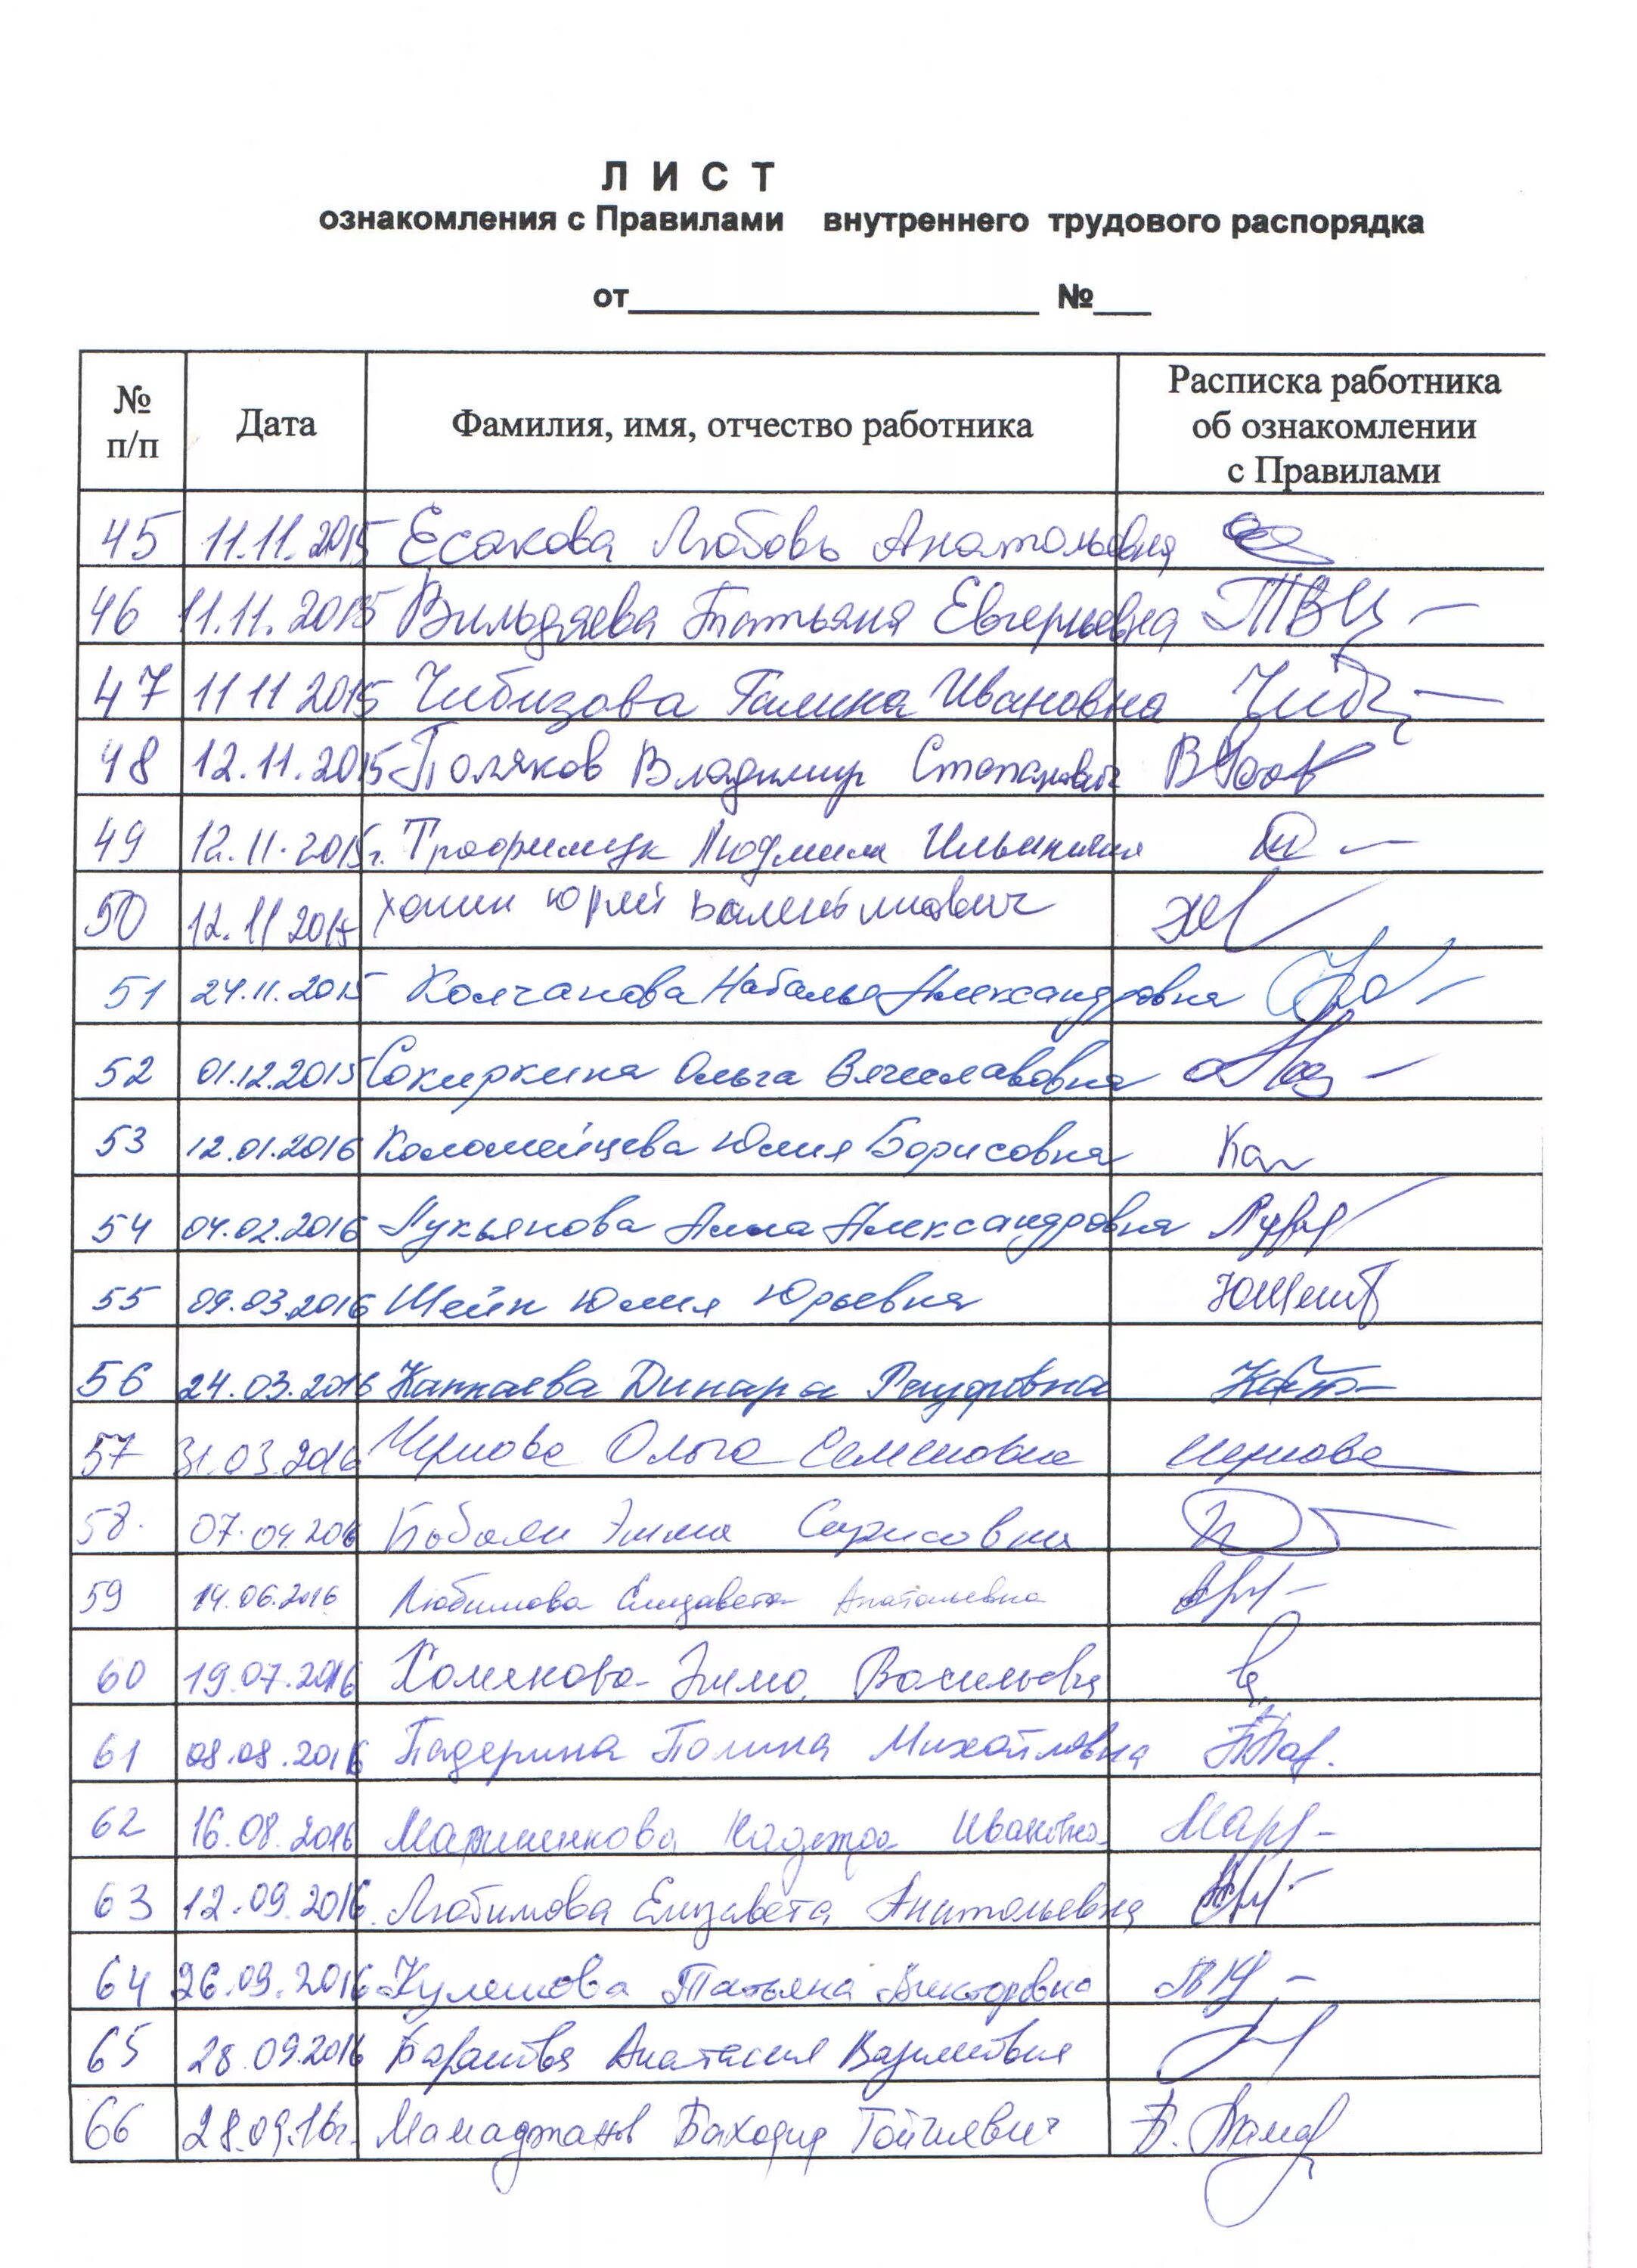 Л И С Т
ознакомления с Правилами внутреннего трудового распорядка
от____________________ №___
№ п/п Дата Фамилия, имя, отчество работника Расписка работника об ознакомлении с Правилами
45 11.11.2015 Есакова Любовь Анатольевна
46 11.11.2015 Вильдяева Татьяна Евгеньевна
47 11 11 2015 Чибизова Галина Ивановна Чибз
48 12.11.2015 Поляков Владимир Степанович
49 12.11.2015г. Трофимцк Людмила Ильинична
50 12.11 2015 Хонин Юрий Валентинович
51 24.11.2015 Колчанова Наталья Александровна
52 01.12.2015 Сокиркина Ольга Вячеславовна
53 12.01.2016 Коломейцева Юлия Борисовна
54 04.02.2016 Лукьянова Анна Александровна
55 09.03.2016 Шейн Юлия Юрьевна
56 24.03.2016 Каппаева Динара Рауфовна
57 31.03.2016 Чернова Ольга Семеновна Чернова
58. 07.04.2016 Эмма
59 14.06.2016 Любимова Елизавета Анатольевна
60 19.07.2016 Хомякова Эмма Васильевна
61 08.08.2016 Падерина Полина Михайловна
62 16.08.2016 Надежда Ивановна
63 12.09.2016 Любимова Елизавета Анатольевна
64 26.09.2016 Кулешова Татьяна Викторовна
65 28.09.2016 Баранова Анастасия Вадимовна
66 28.09.16г. Мамаджанов Баходир Тойчиевич